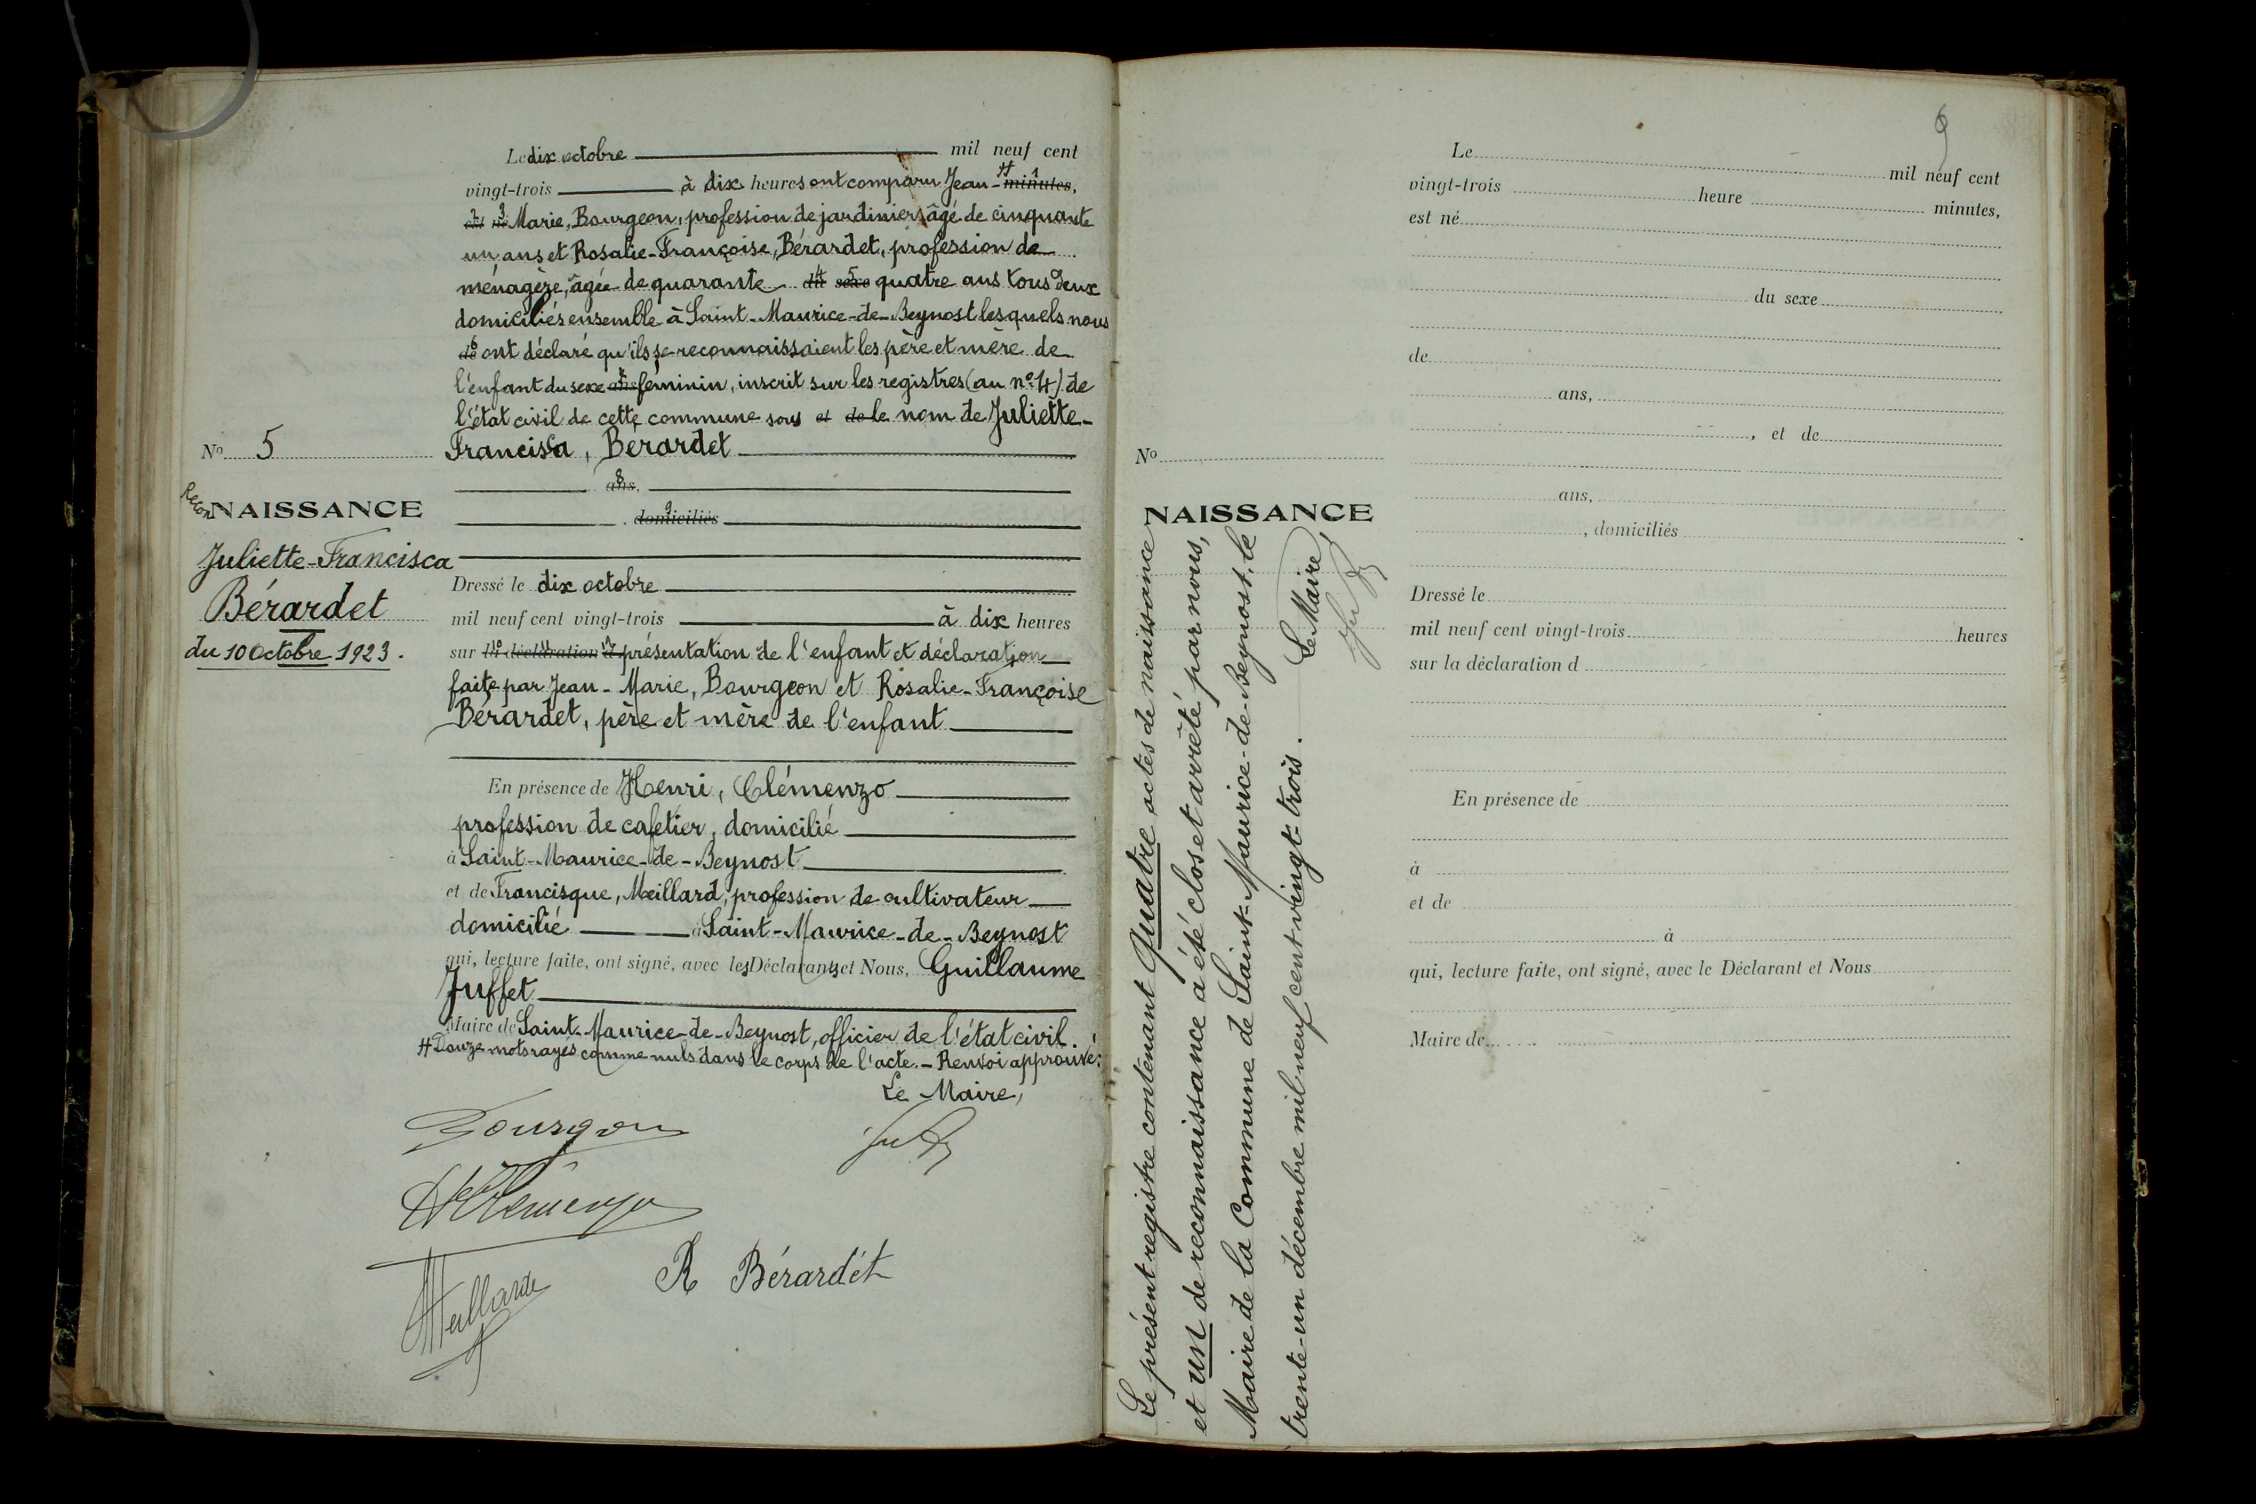 Le dix octobre mil neuf cent
vingt-trois à dix heures ont comparu Jean- # minutes,
est né Marie, Bourgeon, profession de jardinier, âgé de cinquante
un ans et Rosalie-Françoise, Bérardet, profession de
ménagère, âgée de quarante du sexe quatre ans tous deux
domiciliés ensemble à Saint-Maurice-de-Beynost lesquels nous
de ont déclaré qu'ils se reconnaissaient les père et mère de
l'enfant du sexe ans feminin, inscrit sur les registres (au n° 4) de
l'état civil de cette commune sous et de le nom de Juliette-
Francisca, Bérardet
ans,
, domiciliés
Dressé le dix octobre
mil neuf cent vingt-trois à dix heures
sur la déclaration d présentation de l'enfant et déclaration
faite par Jean-Marie, Bourgeon et Rosalie-Françoise
Bérardet, père et mère de l'enfant
En présence de Henri, Clémenzo
profession de cafetier, domicilié
à Saint-Maurice-de-Beynost
et de Francisque, Meillard, profession de cultivateur
domicilié à Saint-Maurice-de-Beynost
qui, lecture faite, ont signé, avec les Déclarants et Nous, Guillaume
Juffet
Maire de Saint-Maurice-de-Beynost, officier de l'état civil.
# Douze mots rayés comme nuls dans le corps de l'acte.- Renvoi approuvé:
Le Maire,
Bourgeon
HClémenzo
R Bérardet
No 5
Recon
NAISSANCE
Juliette-Francisca
Bérardet
du 10 Octobre 1923.
No
NAISSANCE
Le présent registre contenant Quatre actes de naissance
et un de reconnaissance a été clos et arrêté par nous,
Maire de la Commune de Saint-Maurice-de-Beynost, le
trente-un décembre mil neuf cent vingt-trois. Le Maire,
Le mil neuf cent
vingt-trois heure minutes,
est né
du sexe
de
ans,
, et de
ans,
, domiciliés
Dressé le
mil neuf cent vingt-trois heures
sur la déclaration d
En présence de
à
et de
à
qui, lecture faite, ont signé, avec le Déclarant et Nous
Maire de